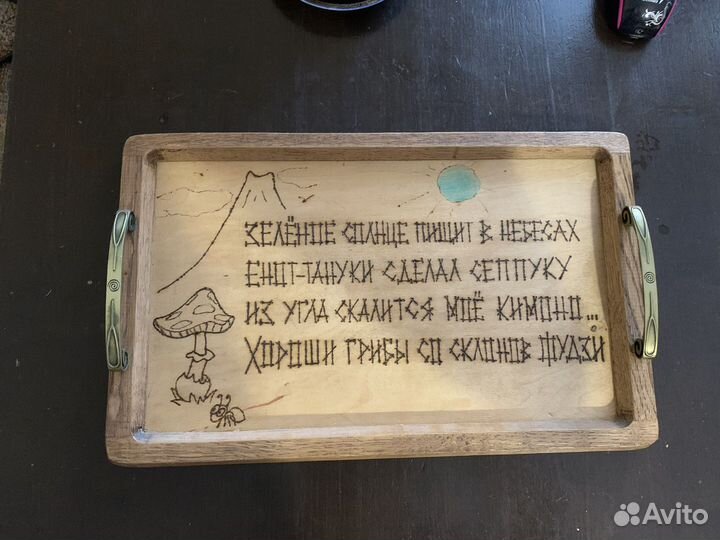 Зелёное солнце пищит в небесах
Енот-тануки сделал сеппуку
Из угла скалится моё кимоно...
Хороши грибы со склонов Фудзи
Avito